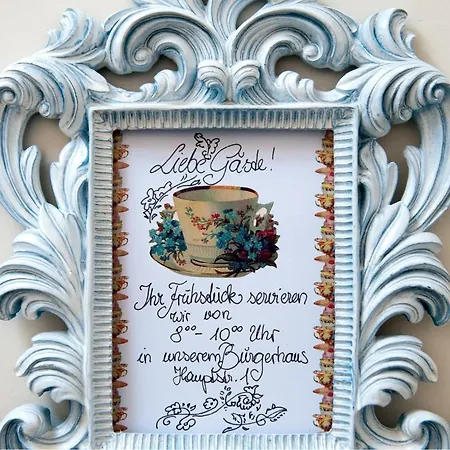 Liebe Gäste!
Ihr Frühstück servieren
wir von
8⁰⁰ - 10⁰⁰ Uhr
in unserem Bürgerhaus
Hauptstr. 1